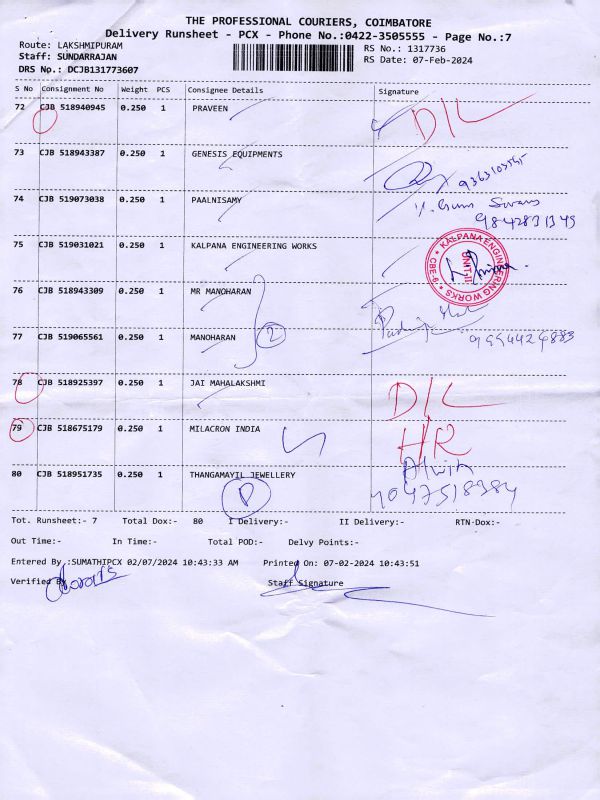 THE PROFESSIONAL COURIERS, COIMBATORE
Delivery Runsheet - PCX - Phone No.:0422-3505555 - Page No.:7
Route: LAKSHMIPURAM RS No.: 1317736
Staff: SUNDARRAJAN RS Date: 07-Feb-2024
DRS No.: DCJB131773607
S No Consignment No Weight PCS Consignee Details Signature
72 CJB 518940945 0.250 1 PRAVEEN D/L
73 CJB 518943387 0.250 1 GENESIS EQUIPMENTS
74 CJB 519073038 0.250 1 PAALNISAMY
9842831349
75 CJB 519031021 0.250 1 KALPANA ENGINEERING WORKS
KALPANA ENGINEERING WORKS CBE-9 UNIT-II
76 CJB 518943309 0.250 1 MR MANOHARAN
77 CJB 519065561 0.250 1 MANOHARAN 2
78 CJB 518925397 0.250 1 JAI MAHALAKSHMI D/L
79 CJB 518675179 0.250 1 MILACRON INDIA HR
80 CJB 518951735 0.250 1 THANGAMAYIL JEWELLERY
P
Tot. Runsheet:- 7 Total Dox:- 80 I Delivery:- II Delivery:- RTN-Dox:-
Out Time:- In Time:- Total POD:- Delvy Points:-
Entered By :SUMATHIPCX 02/07/2024 10:43:33 AM Printed On: 07-02-2024 10:43:51
Verified By Staff Signature